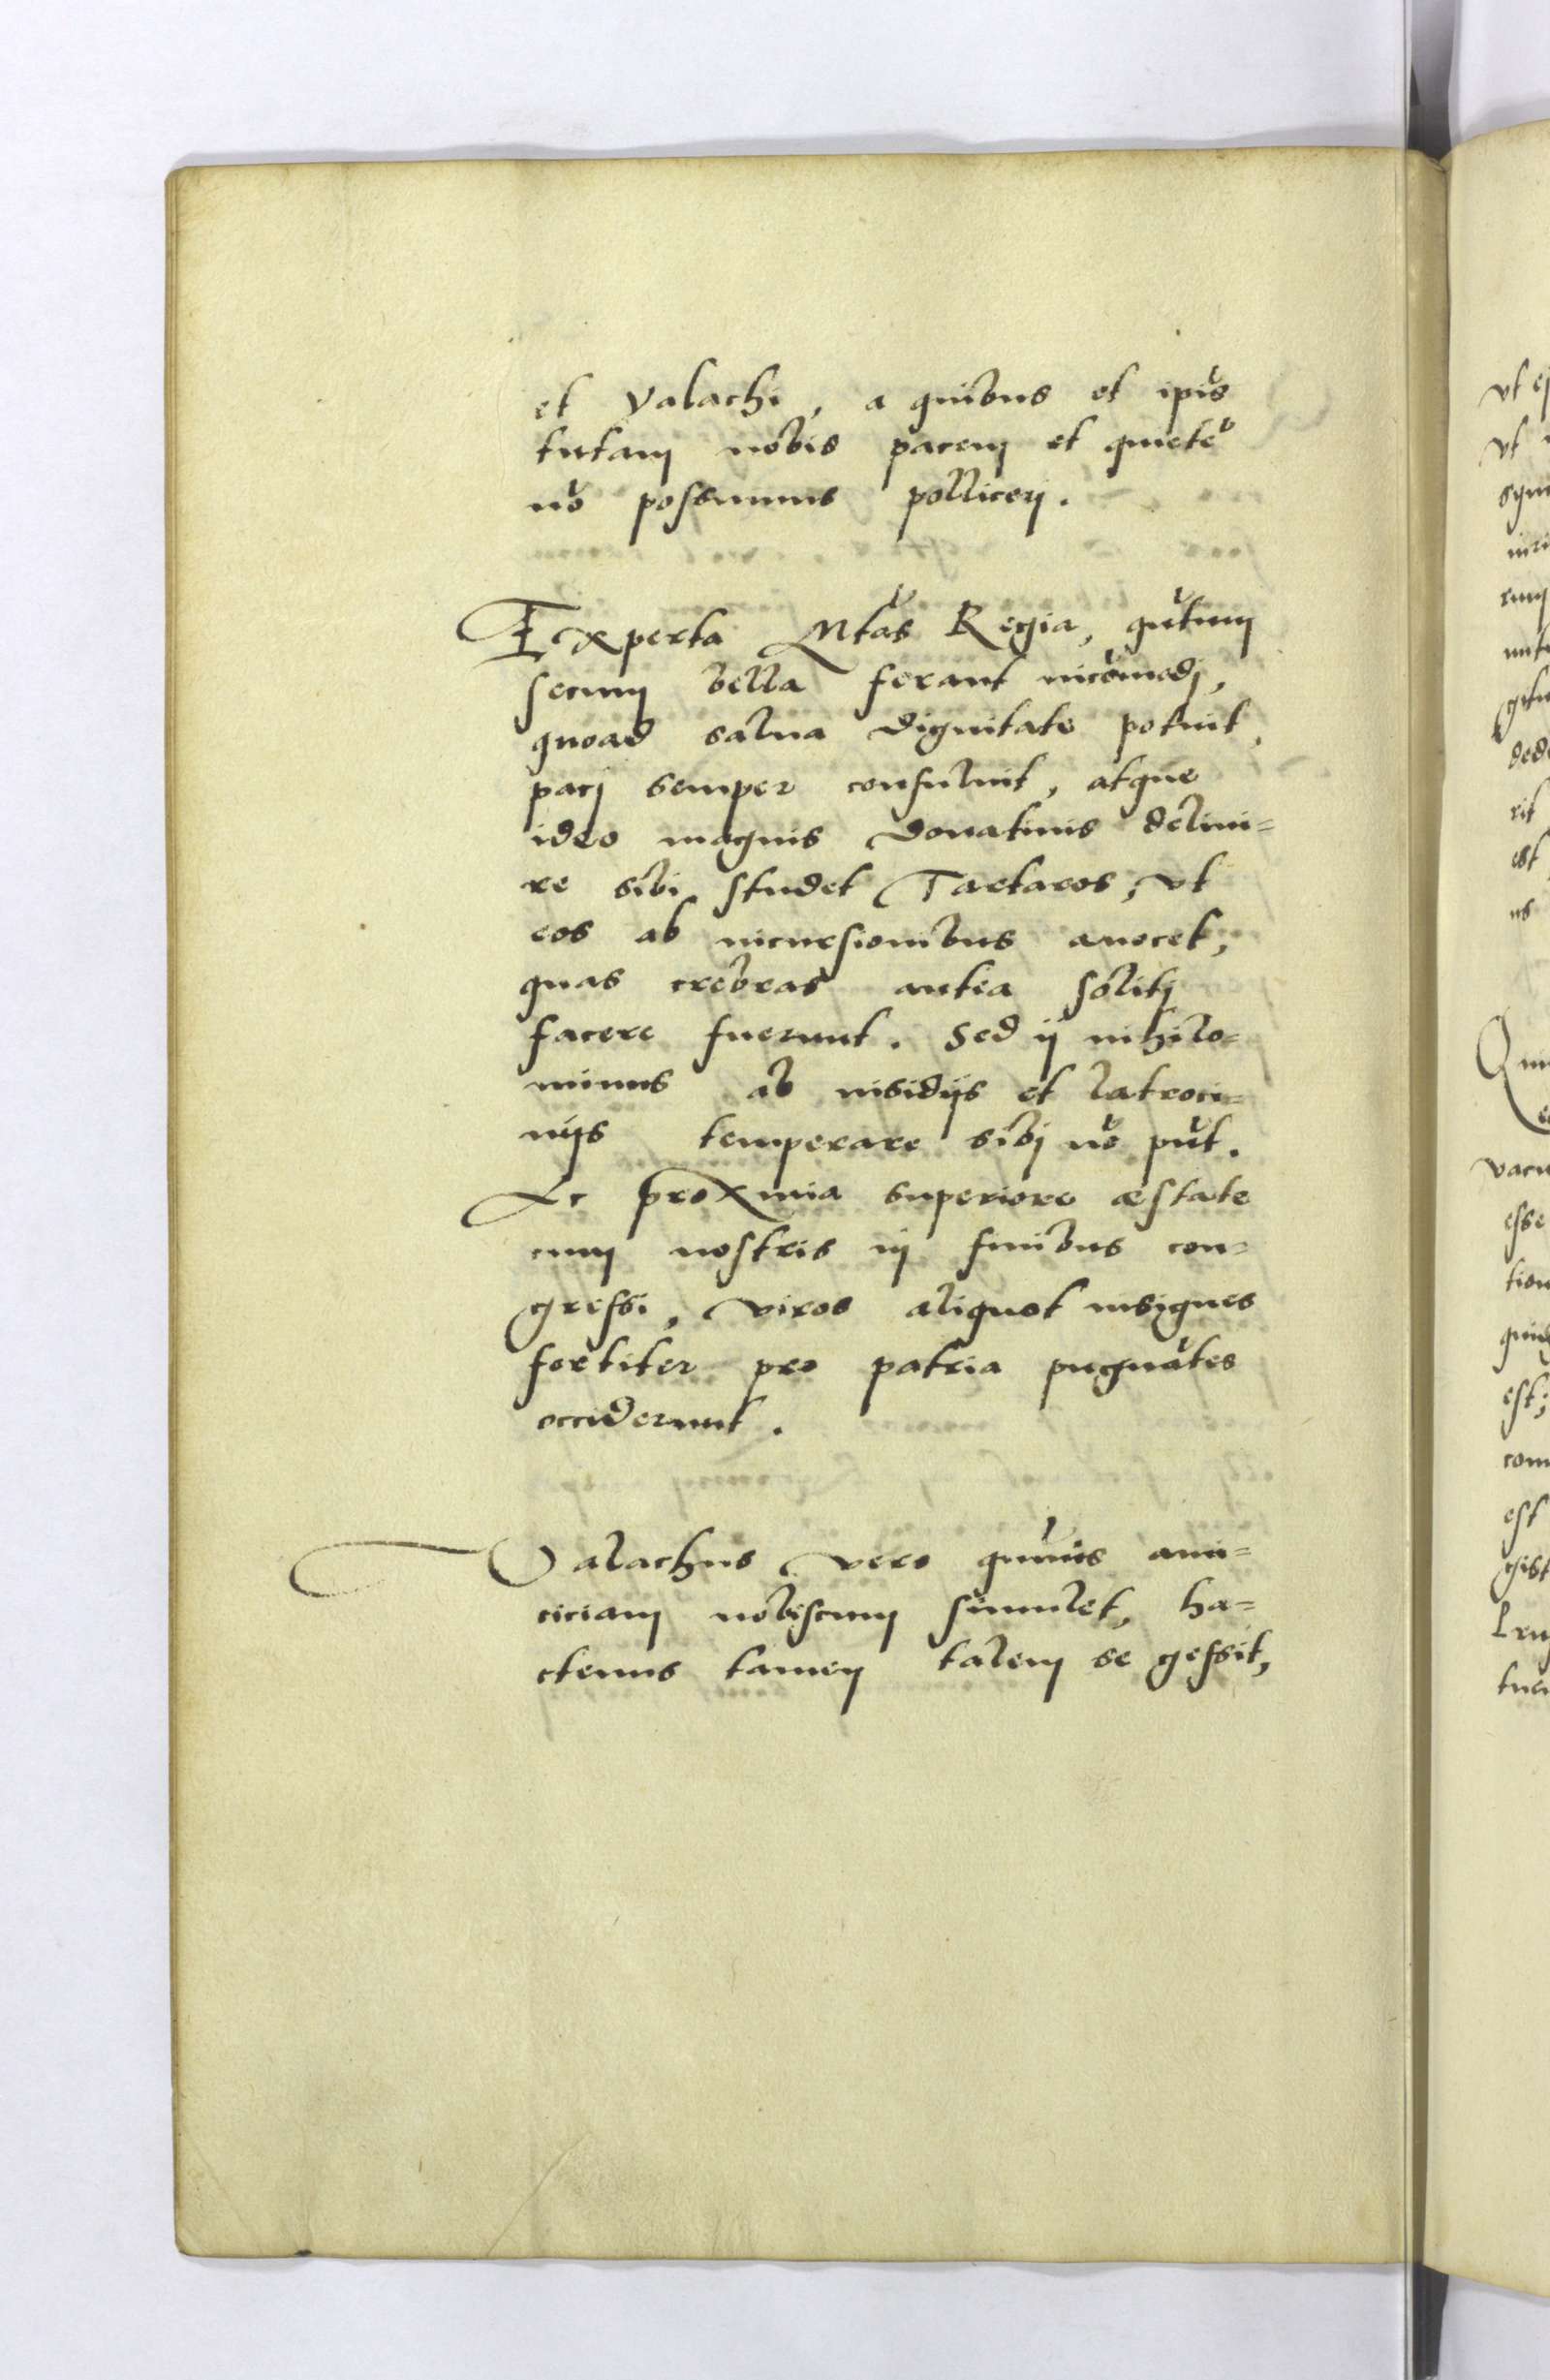 et Valachi, a quibus et ip̆is
tutam nobis pacem et quietĕ
nŏ possumus polliceri.
Experta M̆tas Regia, quătum
secum bella ferant incŏmodi,
quoad salua dignitate potuit,
paci semper consuluit, atque
ideo magnis donatiuis delini=
re sibi studet Tartaros, vt
eos ab incursionibus auocet,
quas crebras antea soliti
facere fuerunt. Sed ij nihilo=
minus ab insidijs et latroci=
nijs temperare sibi nŏ pŭt.
Ac proxima superiore æstate
cum nostris in finibus con=
gressi, viros aliquot insignes
fortiter pro patria pugnătes
occiderunt.
Valachus vero quŭis ami=
ciciam nobiscum simulet, ha=
ctenus tamen talem se gessit,